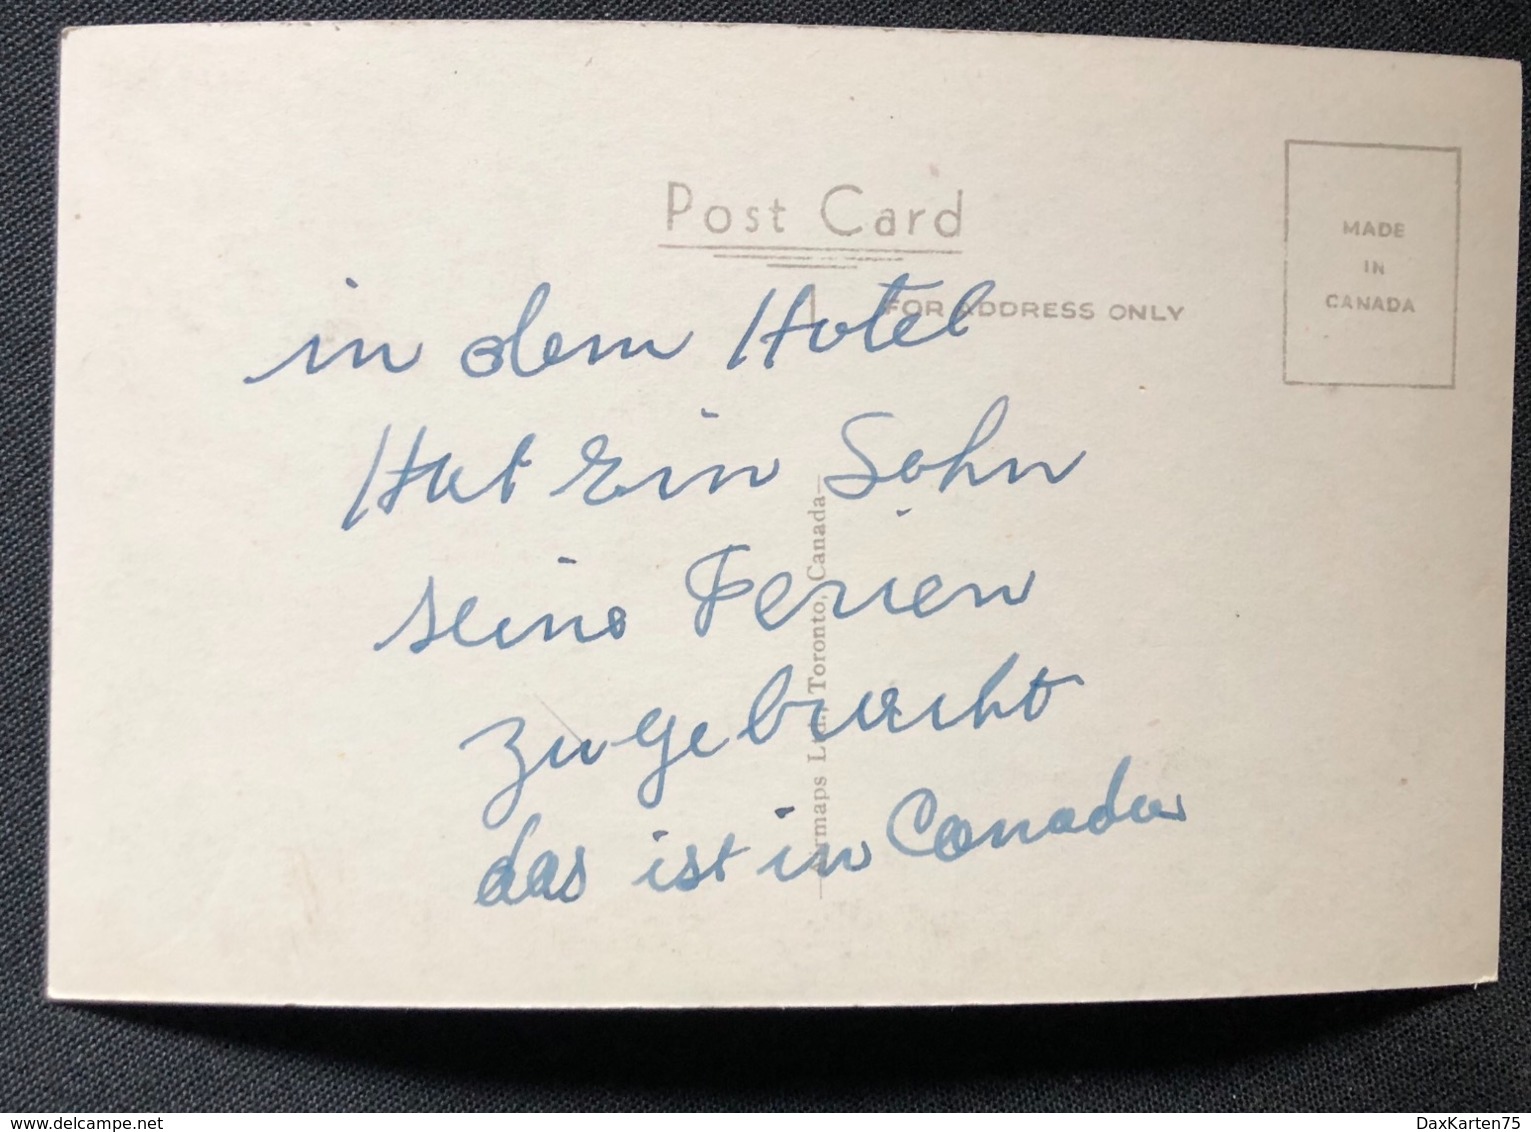 Post Card
FOR ADDRESS ONLY
MADE
IN
CANADA
in dem Hotel
Hat Ein Sohn
seine Ferien
zugebracht
das ist in Canada
Toronto, Canada
delcampe.net
DaxKarten75